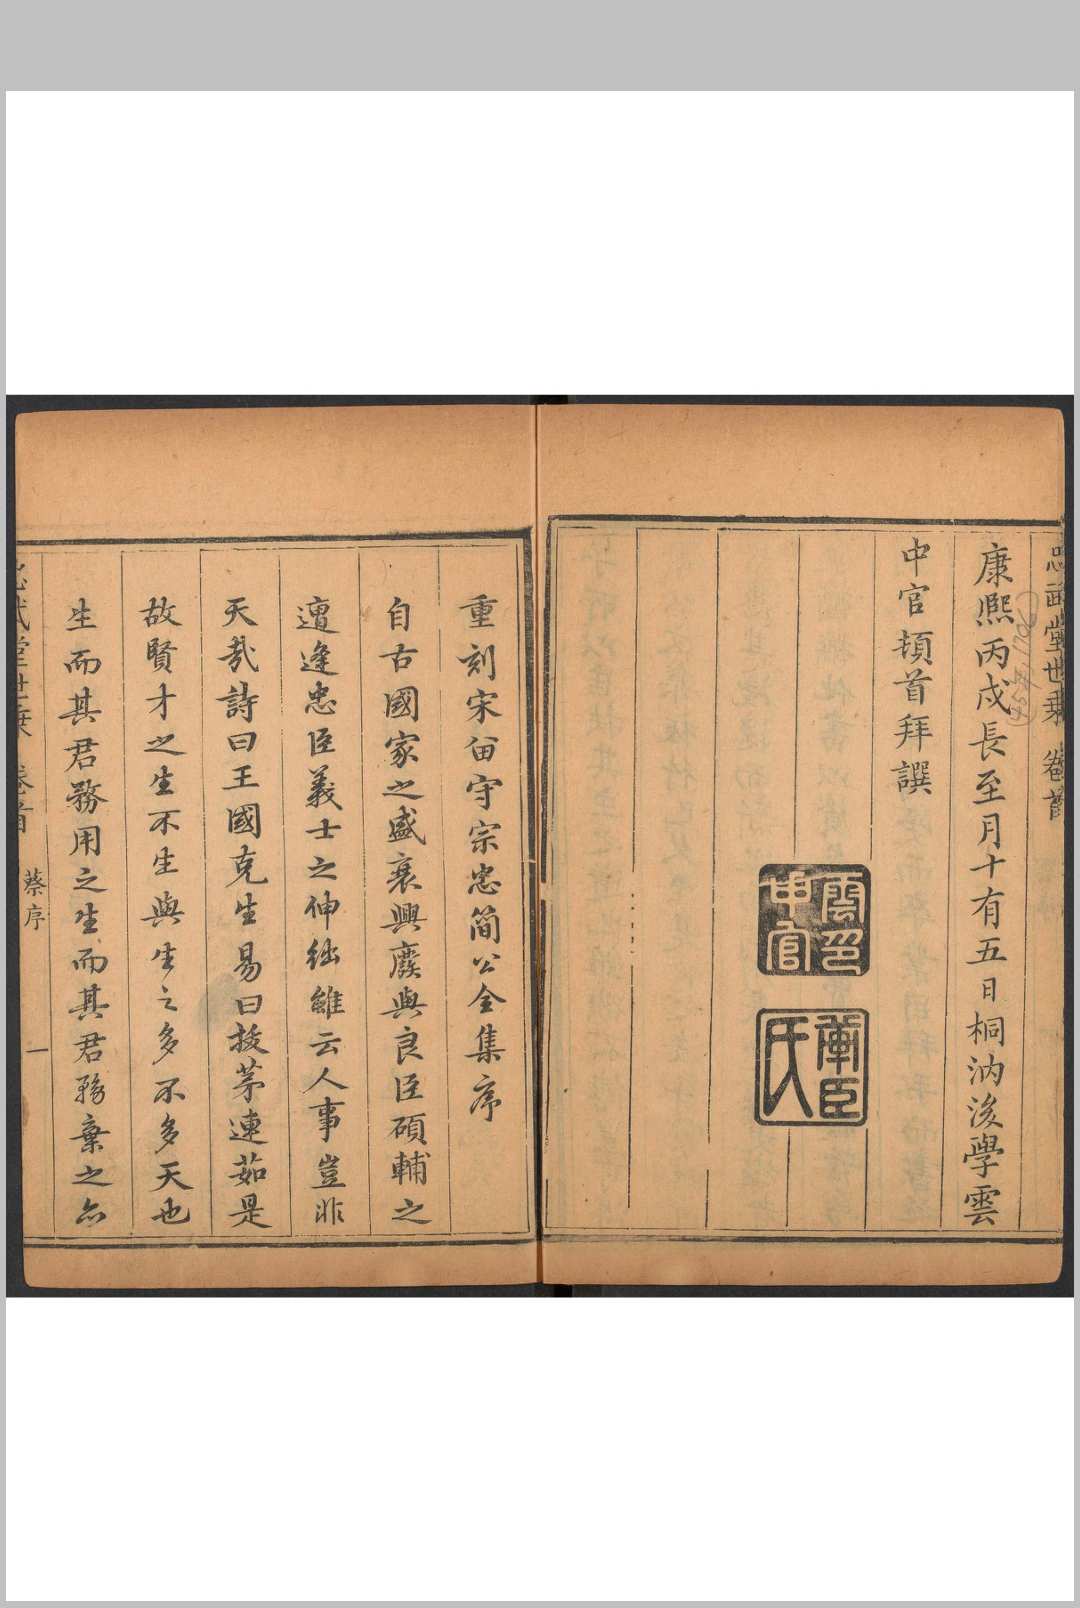 忠武堂世乘 卷首
康熙丙戍長至月十有五日桐汭後學雲
中官頓首拜譔
雲印中官
氏
重刻宋畱守宗忠簡公全集序
自古國家之盛衰興廢與良臣碩輔之
遭逢忠臣義士之伸絀雖云人事豈非
天哉詩曰王國克生易曰拔茅連茹是
故賢才之生不生與生之多不多天也
生而其君務用之生而其君務棄之亦
忠武堂世乘 卷首 蔡序 一